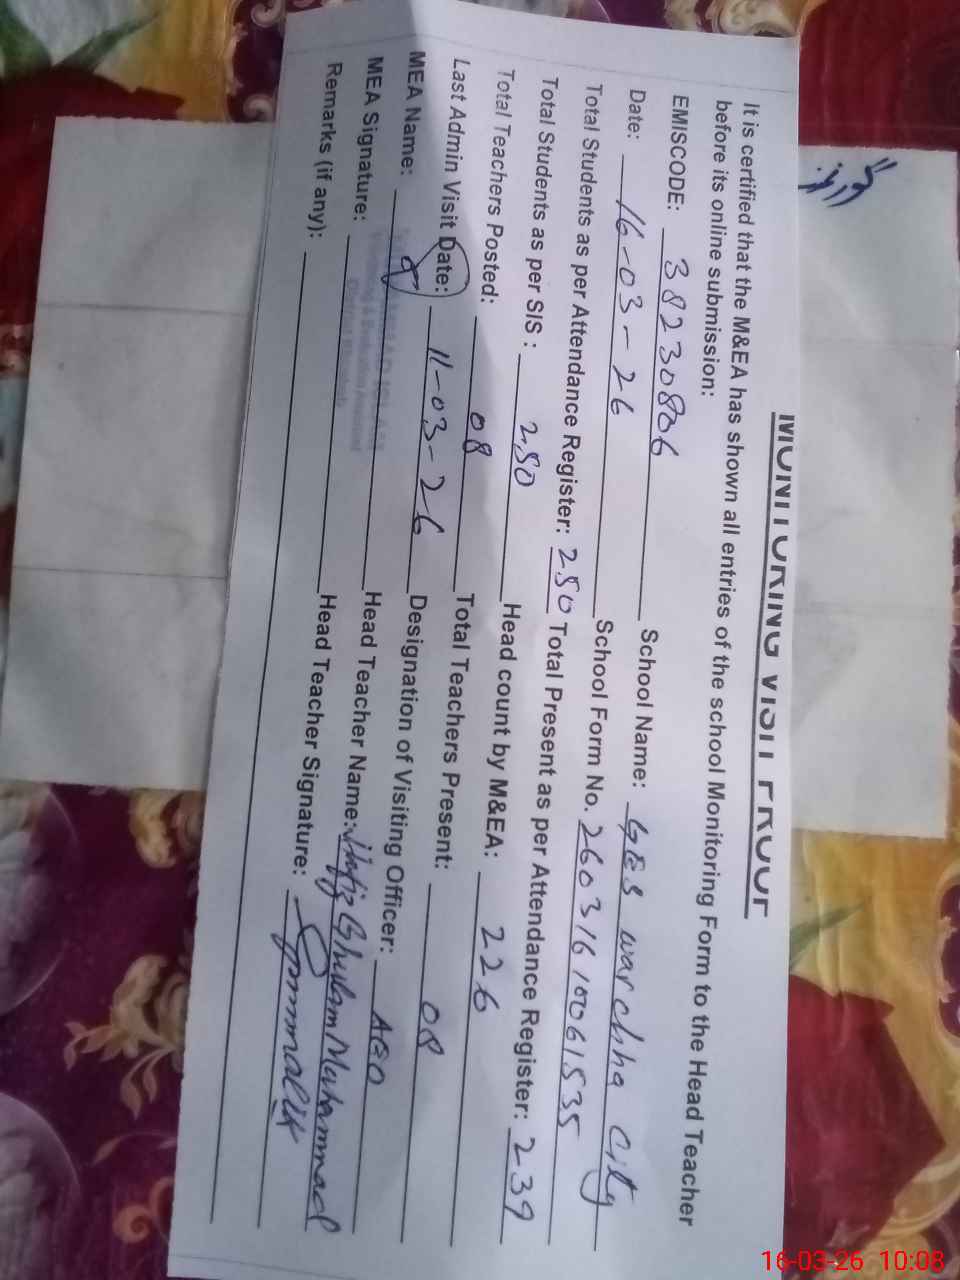 MONITORING VISIT PROOF
It is certified that the M&EA has shown all entries of the school Monitoring Form to the Head Teacher
before its online submission:
EMISCODE: 38230806 School Name: GES warchha City
Date: 16-03-26 School Form No. 26031610061535
Total Students as per Attendance Register: 250 Total Present as per Attendance Register: 239
Total Students as per SIS : 250 Head count by M&EA: 226
Total Teachers Posted: 08 Total Teachers Present: 08
Last Admin Visit Date: 11-03-26 Designation of Visiting Officer: AEO
MEA Name: Head Teacher Name: Hafiz Ghulam Muhammad
MEA Signature: Head Teacher Signature:
Remarks (if any):
16-03-26 10:08